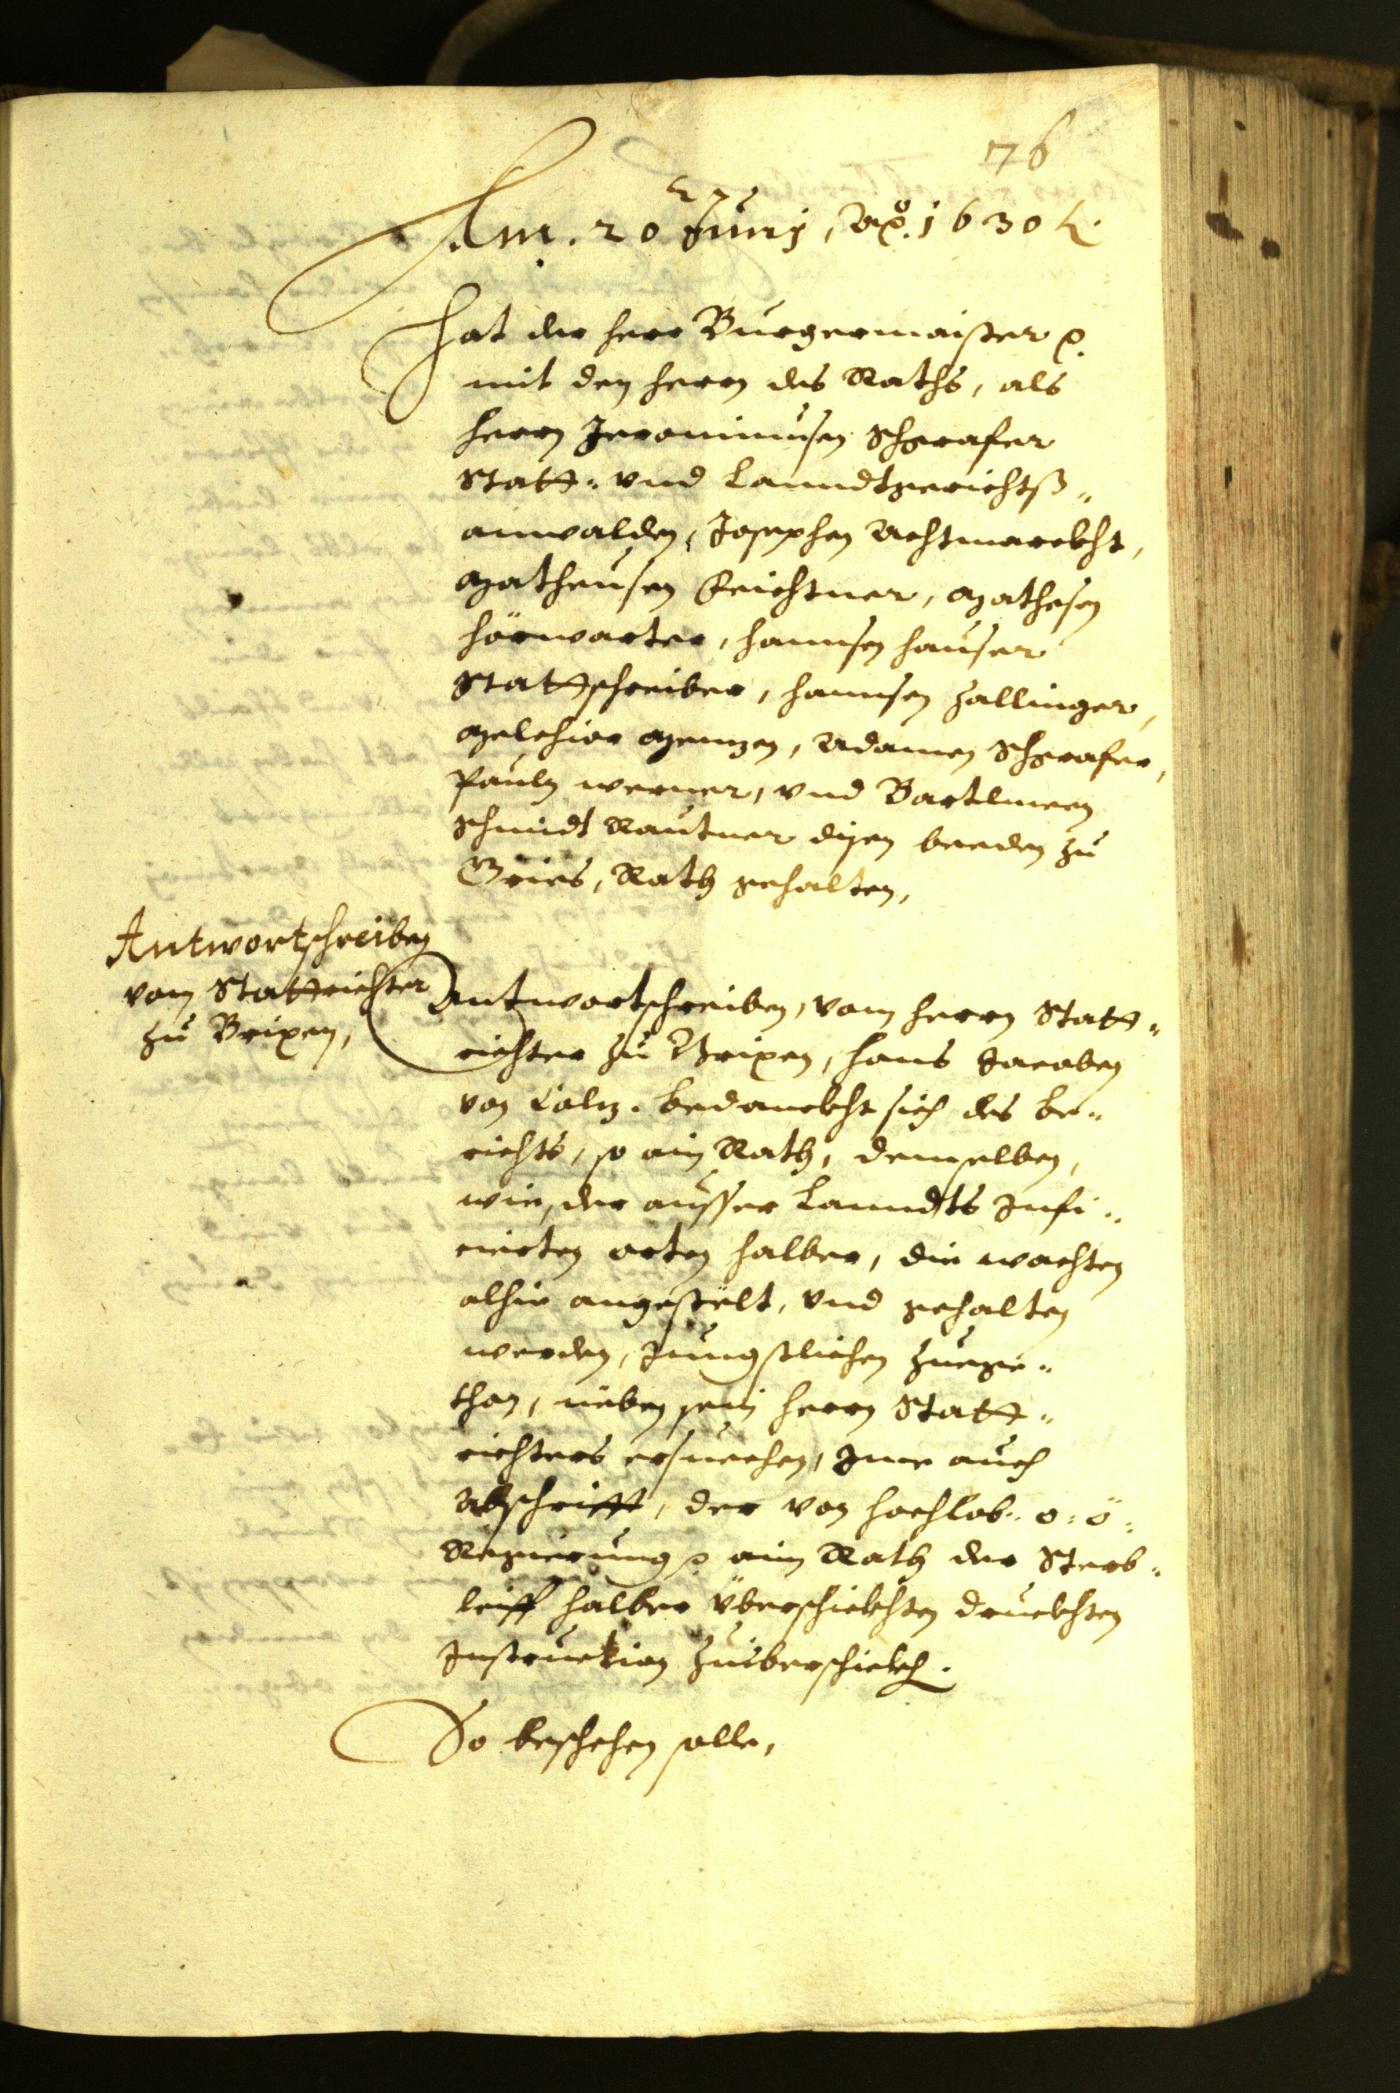 76
Am. 20 Junj, Ao. 1630 
Hat der herr Burgermaister
mit den herrn des Raths, als
herrn Jeronimusen Schgrafer
Statt- vnd Lanndtgerichtß-
anwalden, Josephen Achtmarckht,
Matheusen Feichtner, Mathesen
hörwarter, hannsen hauser
Stattschreiber, hannsen Zallinger,
Melchior Menzen, Adamen Schgrafer,
Pauln werner, vnd Bartlmeen
Schmidt Rautner disen beeden zu
Gries, Rath gehalten,
Antwortschreiben
vom Stattrichter
zu Brixen,
Antwortschreiben, vom herrn Statt-
richter zu Brixen, hans Jacoben
von Cöln. bedanckht sich des be-
richts, so ain Rath, demselben,
wie, der ausser Lanndts Infi-
cierten orten halber, die wachten
alhie angestelt, vnd gehalten
werden, Jüngstlichen zuege-
than, neben sein herrn Statt-
richters ersuechen, Ime auch
Abschrifft, der von hochlob: o: ö:
Regierung ain Rath der Sterb-
leiff halber überschickhten druckhten
Instruction zuüberschickh.
So beschehen solle,